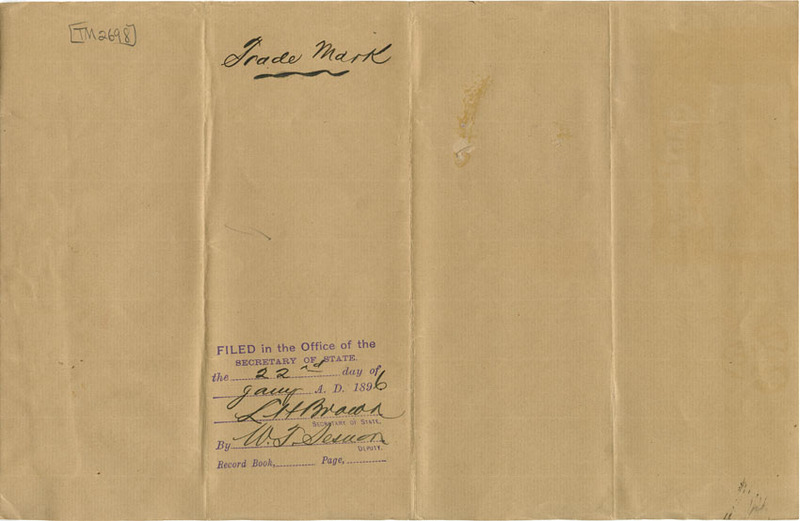 [TM2698]
Trade Mark
FILED in the Office of the
SECRETARY OF STATE.
the 22nd day of
Jany A. D. 1896
L H Brown
SECRETARY OF STATE.
By W. T. Sesnon
DEPUTY.
Record Book, Page,